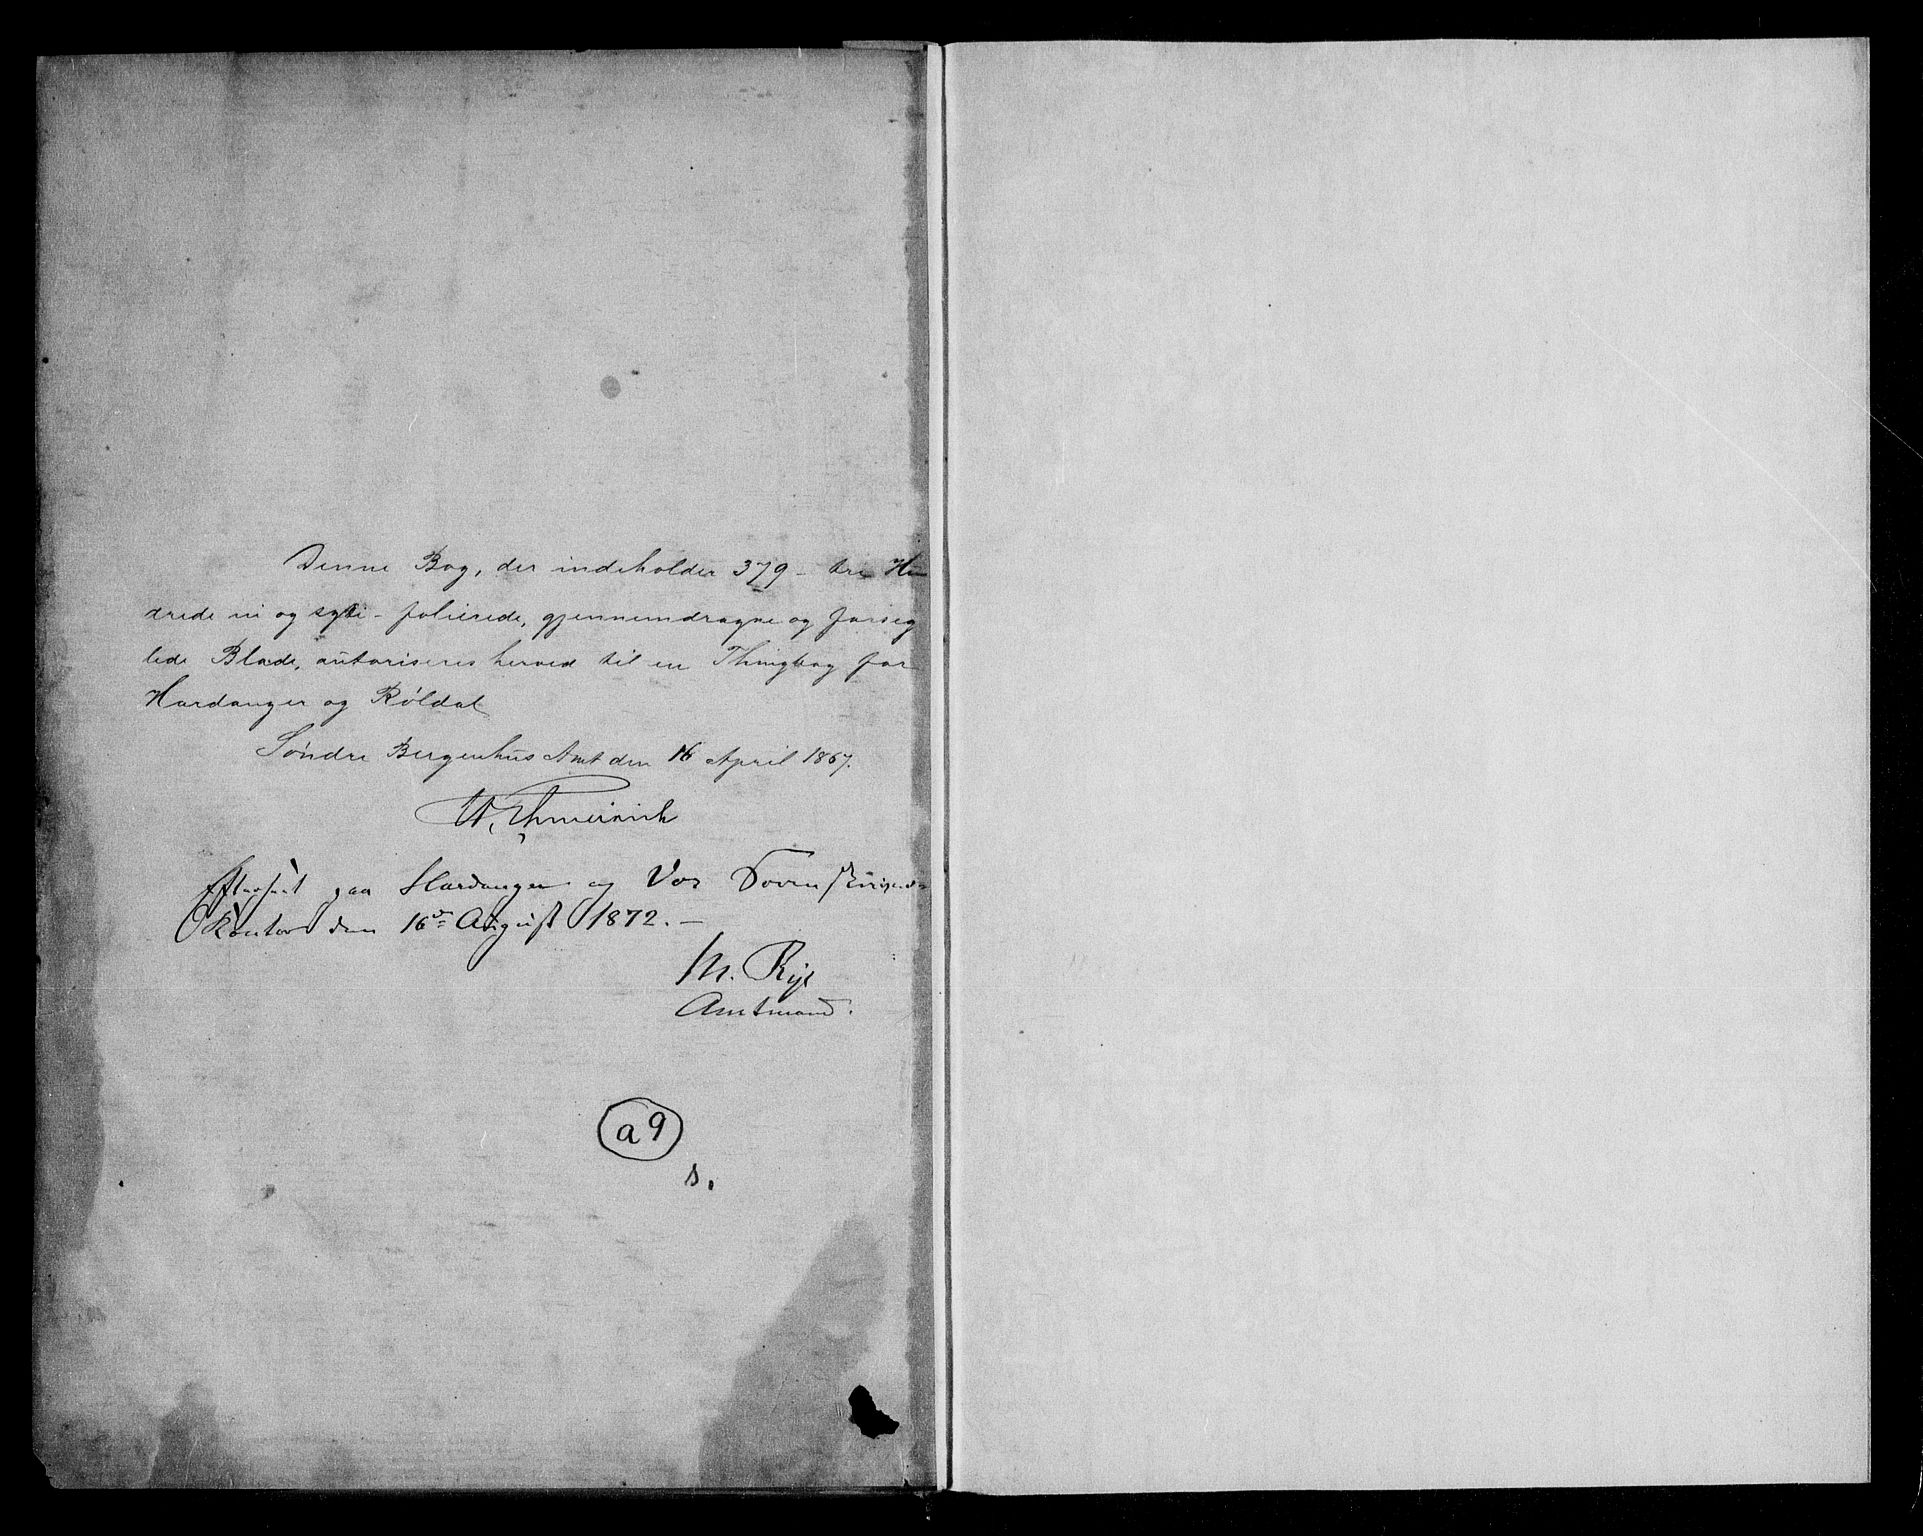 Denne Bog, der indeholder 379 - tre Hun
drede ni og sytti - folierede, gjennemdragne og forseg
lede Blade, autoriseres herved til en Thingbog for
Hardanger og Röldal
Söndre Bergenhus Amt den 16 April 1867.
Efterseet paa Hardanger og Vos Sorenskriver-
kontor den 16de August 1872. -
M. Rye
Amtmand.
a 9
s.